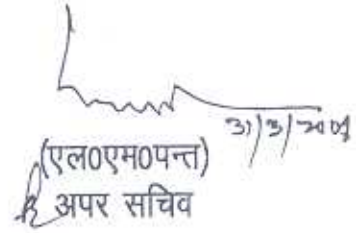 31/3/2009
(एल0एम0पन्त)
अपर सचिव